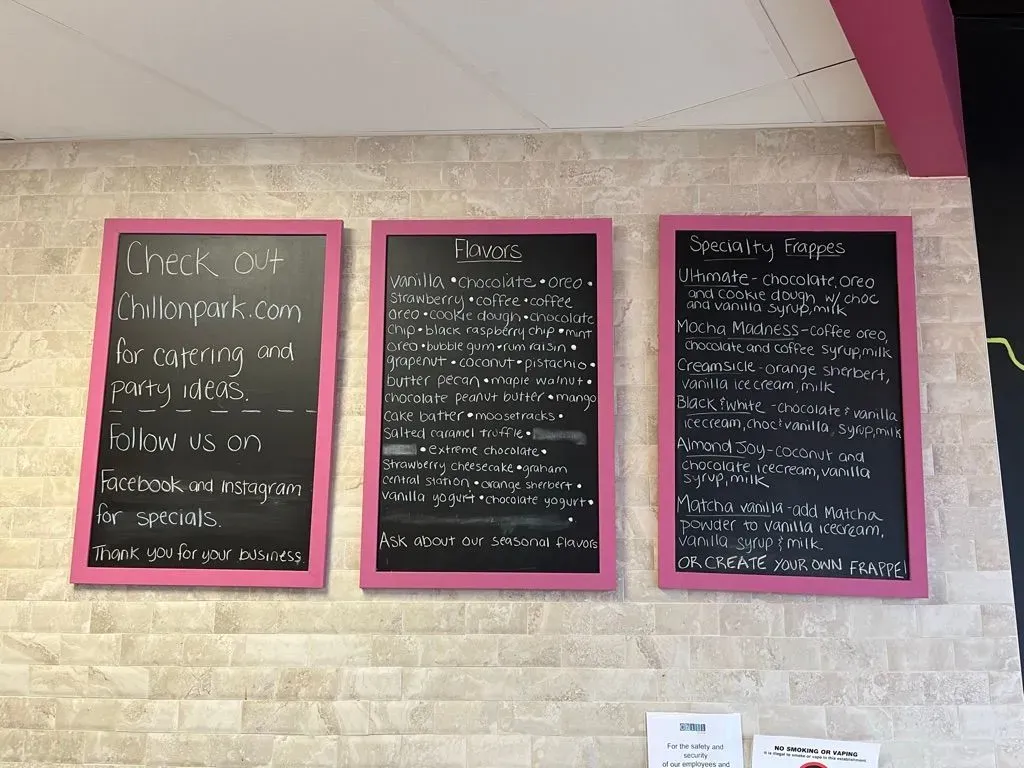 Check out
Chillonpark.com
for catering and
party ideas.
Follow us on
Facebook and Instagram
for specials.
Thank you for your business.
Flavors
vanilla • chocolate • oreo •
strawberry • coffee • coffee
oreo • cookie dough • chocolate
chip • black raspberry chip • mint
oreo • bubble gum • rum raisin •
grapenut • coconut • pistachio •
butter pecan • maple walnut •
chocolate peanut butter • mango
cake batter • moosetracks •
salted caramel truffle •
• extreme chocolate •
strawberry cheesecake • graham
central station • orange sherbert •
vanilla yogurt • chocolate yogurt •
•
Ask about our seasonal flavors
Specialty Frappes
Ultimate - chocolate, oreo
and cookie dough w/ choc
and vanilla syrup, milk
Mocha Madness - coffee oreo,
chocolate and coffee syrup, milk
Creamsicle - orange sherbert,
vanilla ice cream, milk
Black & White - chocolate & vanilla
icecream, choc & vanilla, syrup, milk
Almond Joy - coconut and
chocolate icecream, vanilla
syrup, milk
Matcha vanilla - add Matcha
powder to vanilla icecream,
vanilla syrup & milk.
OR CREATE YOUR OWN FRAPPE!
For the safety and
security
of our employees and
NO SMOKING OR VAPING
It is illegal to smoke or vape in this establishment